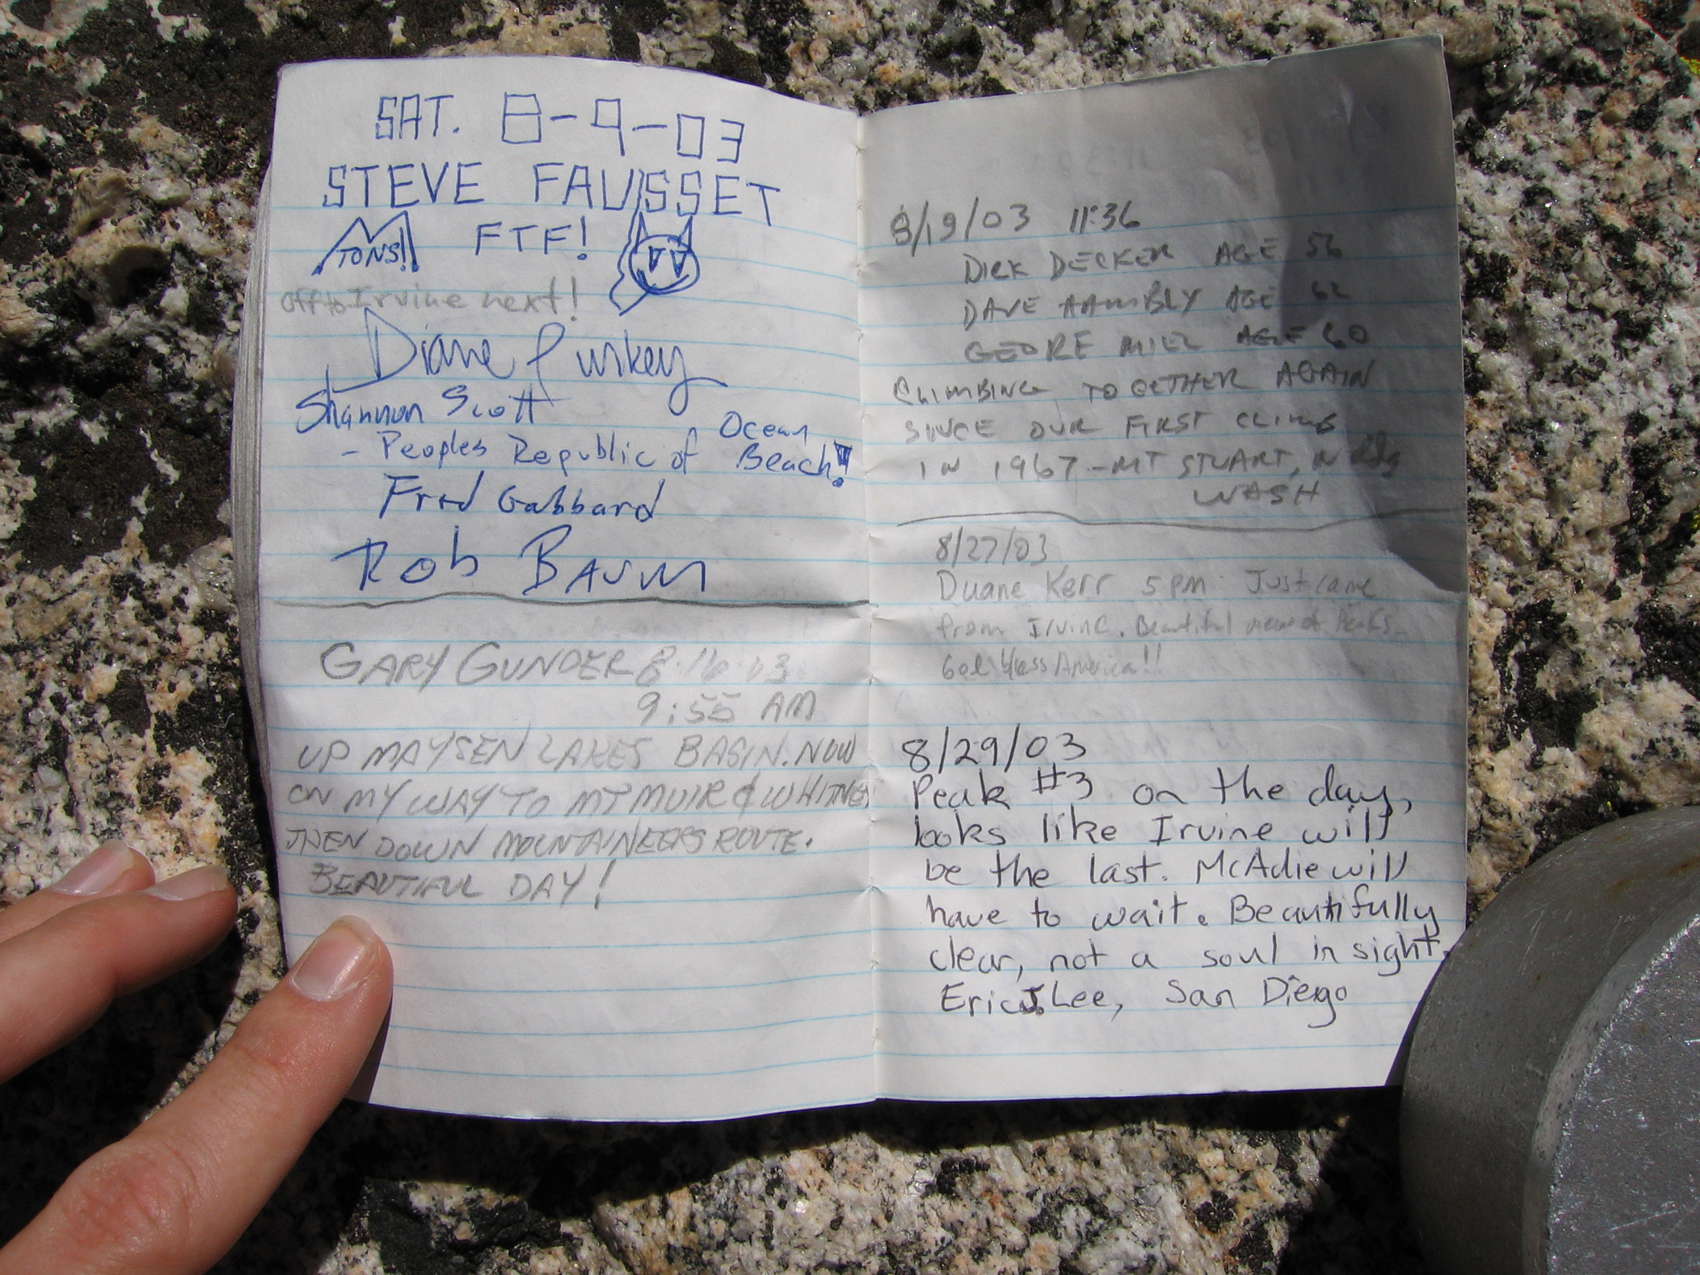 SAT. 8-9-03
STEVE FAUSSET
MTONS!! FTF!
off to Irvine next!
Diane Purkey
Shannon Scott
- Peoples Republic of Ocean Beach!
Fred Gabbard
Rob Baum
GARY GUNDER 8.16.03
9:55 AM
UP MAYSEN LAKES BASIN. NOW
ON MY WAY TO MT MUIR & WHITNEY
THEN DOWN MOUNTAINEERS ROUTE.
BEAUTIFUL DAY!
8/19/03 11:36
DIRK DECKER AGE 56
DAVE HAMBLY AGE 62
GEORE AGE 60
CLIMBING TOGETHER AGAIN
SINCE OUR FIRST CLIMB
IN 1967 - MT STUART, N
WASH
8/27/03
Duane Kerr 5 pm Just came
from Irvine. Beautiful view of Peaks.
God bless America!!
8/29/03
Peak #3 on the day,
looks like Irvine will
be the last. McAdie will
have to wait. Beautifully
clear, not a soul in sight.
Eric J. Lee, San Diego